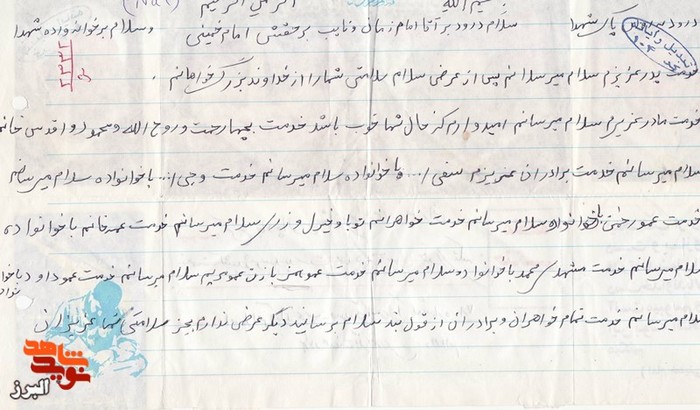 بسم الله الرحمن الرحیم
درود بر پاک شهدا سلام درود بر آقا امام زمان و نایب برحقش امام خمینی و سلام بر خانواده شهدا
خدمت پدر عزیزم سلام میرسانم پس از عرض سلام سلامتی شما را از خداوند بزرگ خواهانم .
خدمت مادر عزیزم سلام میرسانم امیدوارم که حال شما خوب باشد خدمت بچها رحمت و روح الله و محمود و اقدس خانم
سلام میرسانم خدمت برادران عزیزم سفی ا... با خانواده سلام میرسانم خدمت وجی ا... با خانواده سلام میرسانم
خدمت عمو رحمتی با خوانواده سلام میرسانم خدمت خواهرانم توبا و فیرل و زری سلام میرسانم خدمت عمه خانم با خوانواده
سلام میرسانم خدمت مشهدی محمد با خوانواده سلام میرسانم خدمت عمو با زن عمو سلام میرسانم خدمت عمو داود با خوانواده
سلام میرسانم خدمت تمام خواهران و برادران از قول بنده سلام برسانید دیگر عرضی ندارم بجز سلامتی شما عزیزان
نوید شاهد
البرز